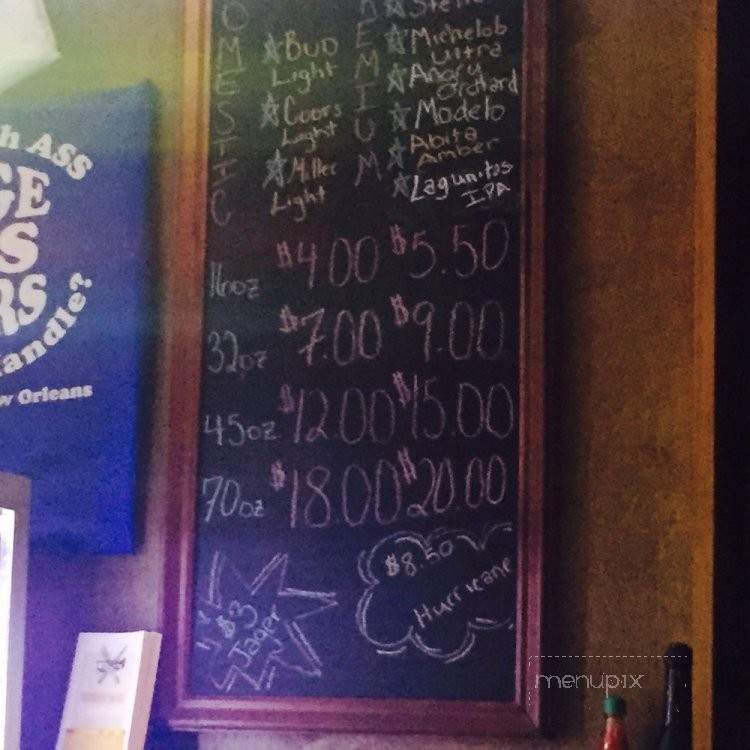 DOMESTIC
☆ Bud
Light
☆ Coors
Light
☆ Miller
Light
☆ Stella
☆ Michelob
Ultra
☆ Angry
Orchard
☆ Modelo
☆ Abita
Amber
☆ Lagunitas
IPA
16oz $4.00 $5.50
32oz $7.00 $9.00
45oz $12.00 $15.00
70oz $18.00 $20.00
$3
Jager
$8.50
Hurricane
h Ass
GE
S
RS
Handle?
w Orleans
menupix